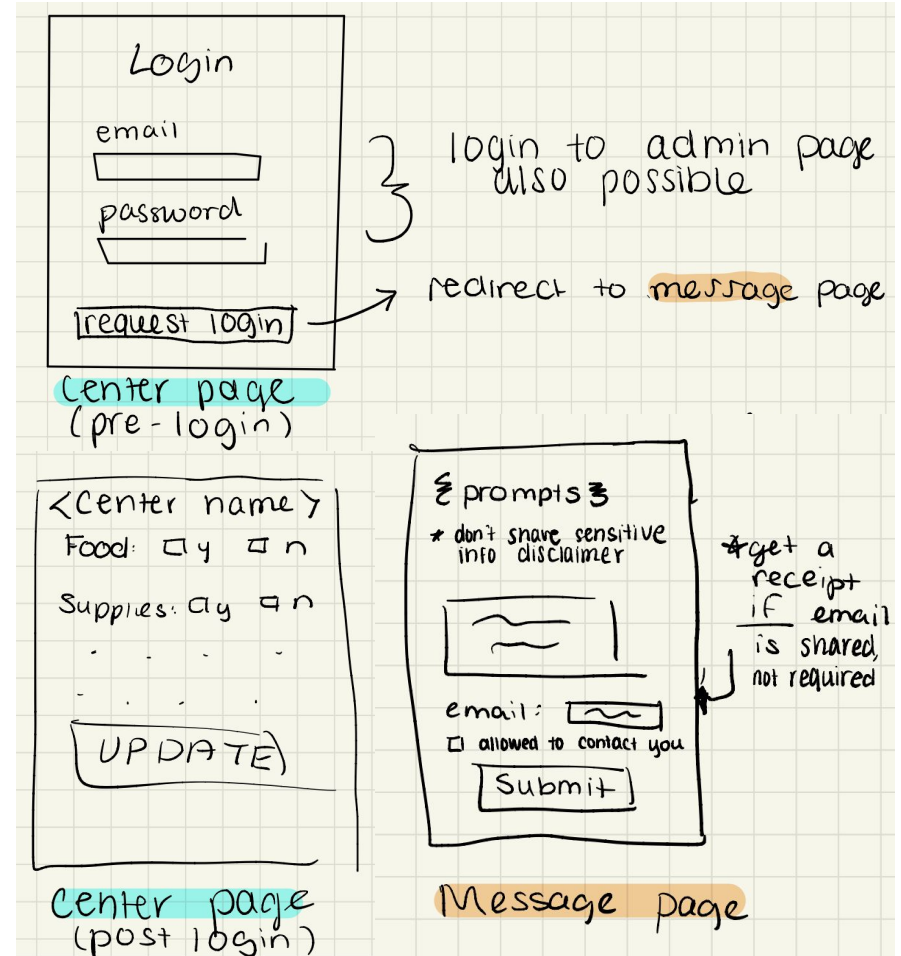 Login
email
password
request login
login to admin page
also possible
redirect to message page
center page
(pre-login)
<Center name>
Food: y n
Supplies: y n
UPDATE
center page
(post login)
{ prompts }
* don't share sensitive
info disclaimer
email:
allowed to contact you
Submit
*get a
receipt
if email
is shared,
not required
Message page